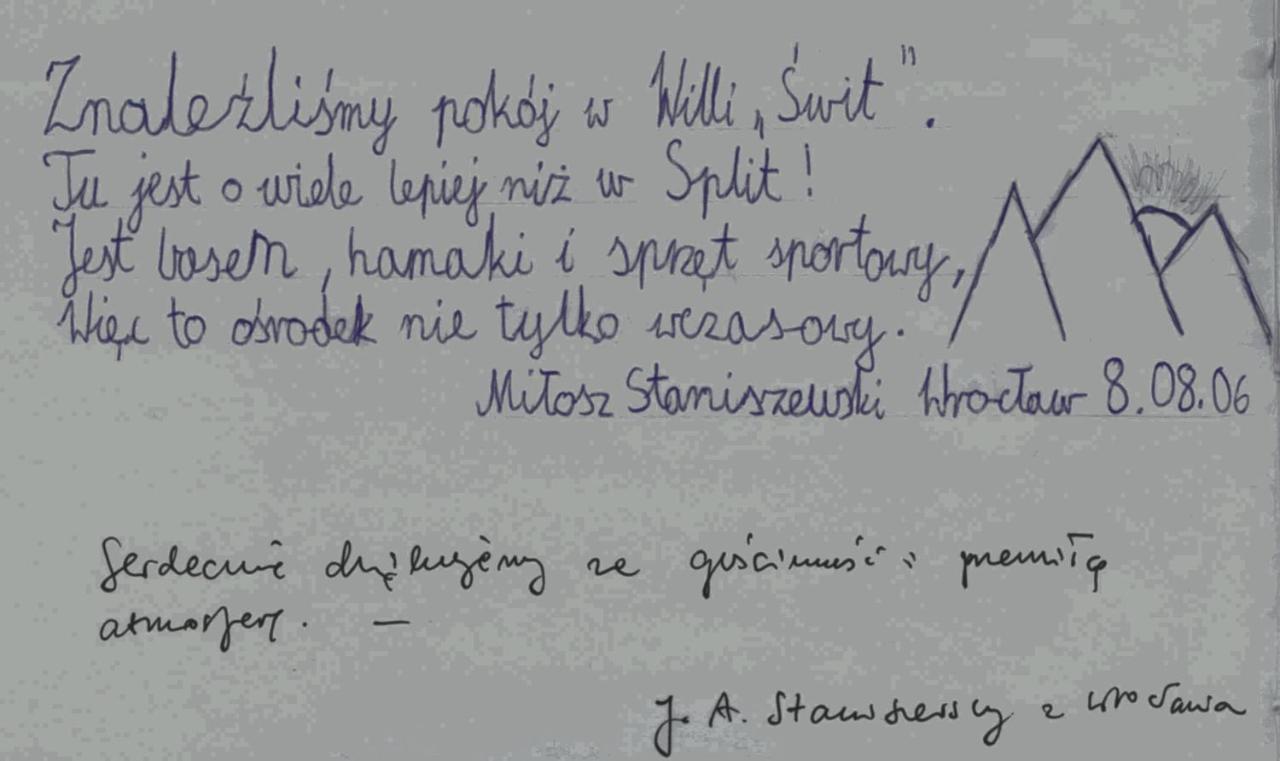 Znaleźliśmy pokój w Willi „Świt”.
Tu jest o wiele lepiej niż w Split!
Jest basen, hamaki i sprzęt sportowy,
Więc to ośrodek nie tylko wczasowy.
Miłosz Staniszewski Wrocław 8.08.06
Serdecznie dziękujemy za gościnność i przemiłą
atmosferę. —
J. A. Staniszewscy z Wrocławia